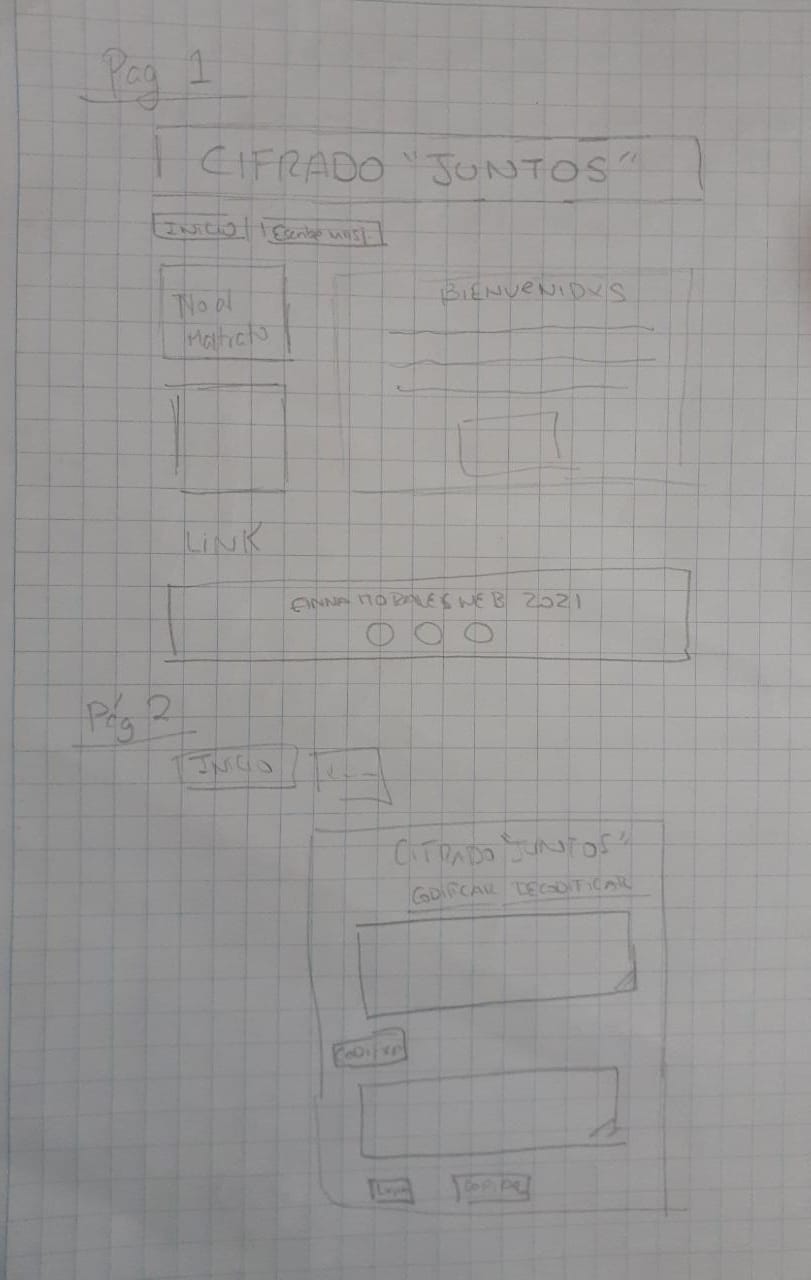 Pag 1
CIFRADO "JUNTOS"
INICIO Escribenos
No al
Maltrato
BIENVENIDXS
LINK
MORALES WEB 2021
Pág 2
INICIO ←
CIFRADO "JUNTOS"
CODIFICAR DECODIFICAR